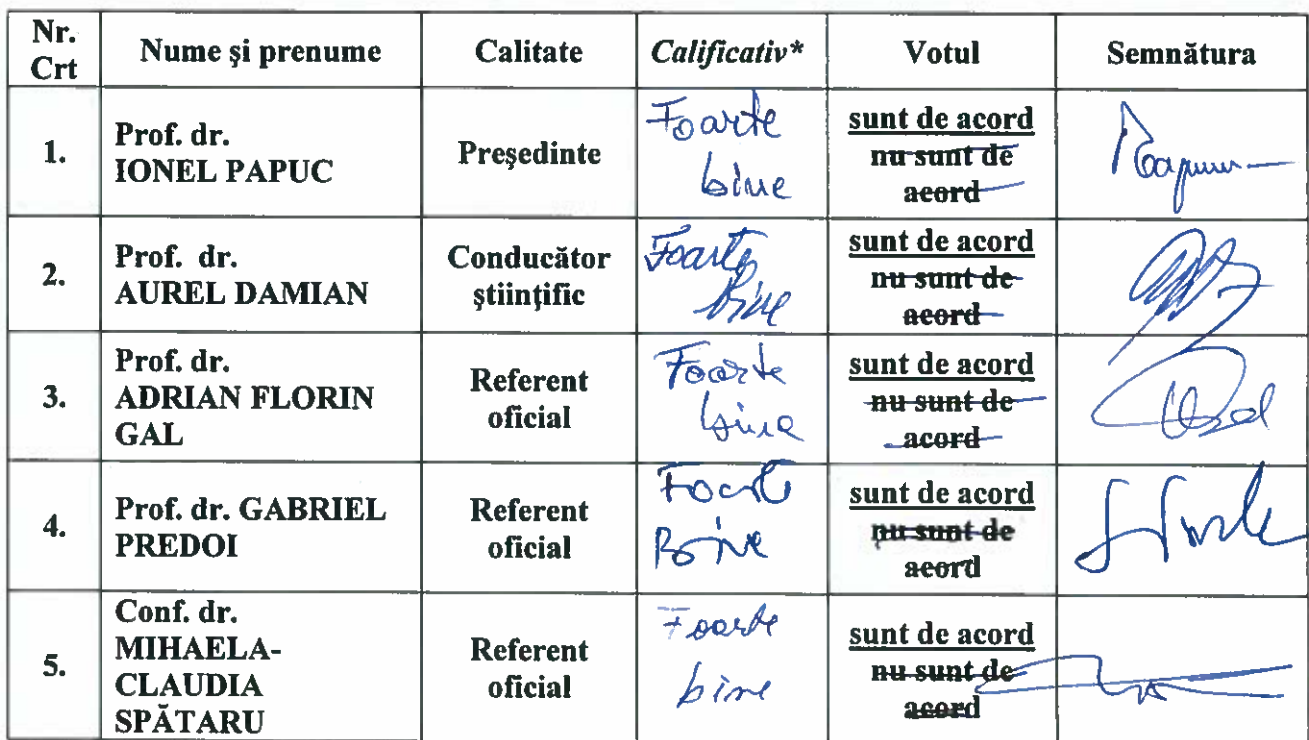 Nr. Crt | Nume şi prenume | Calitate | Calificativ* | Votul | Semnătura
1. | Prof. dr. IONEL PAPUC | Preşedinte | Foarte bine | sunt de acord nu sunt de acord
2. | Prof. dr. AUREL DAMIAN | Conducător ştiinţific | Foarte bine | sunt de acord nu sunt de acord
3. | Prof. dr. ADRIAN FLORIN GAL | Referent oficial | Foarte bine | sunt de acord nu sunt de acord
4. | Prof. dr. GABRIEL PREDOI | Referent oficial | Foarte Bine | sunt de acord nu sunt de acord
5. | Conf. dr. MIHAELA-CLAUDIA SPĂTARU | Referent oficial | Foarte bine | sunt de acord nu sunt de acord